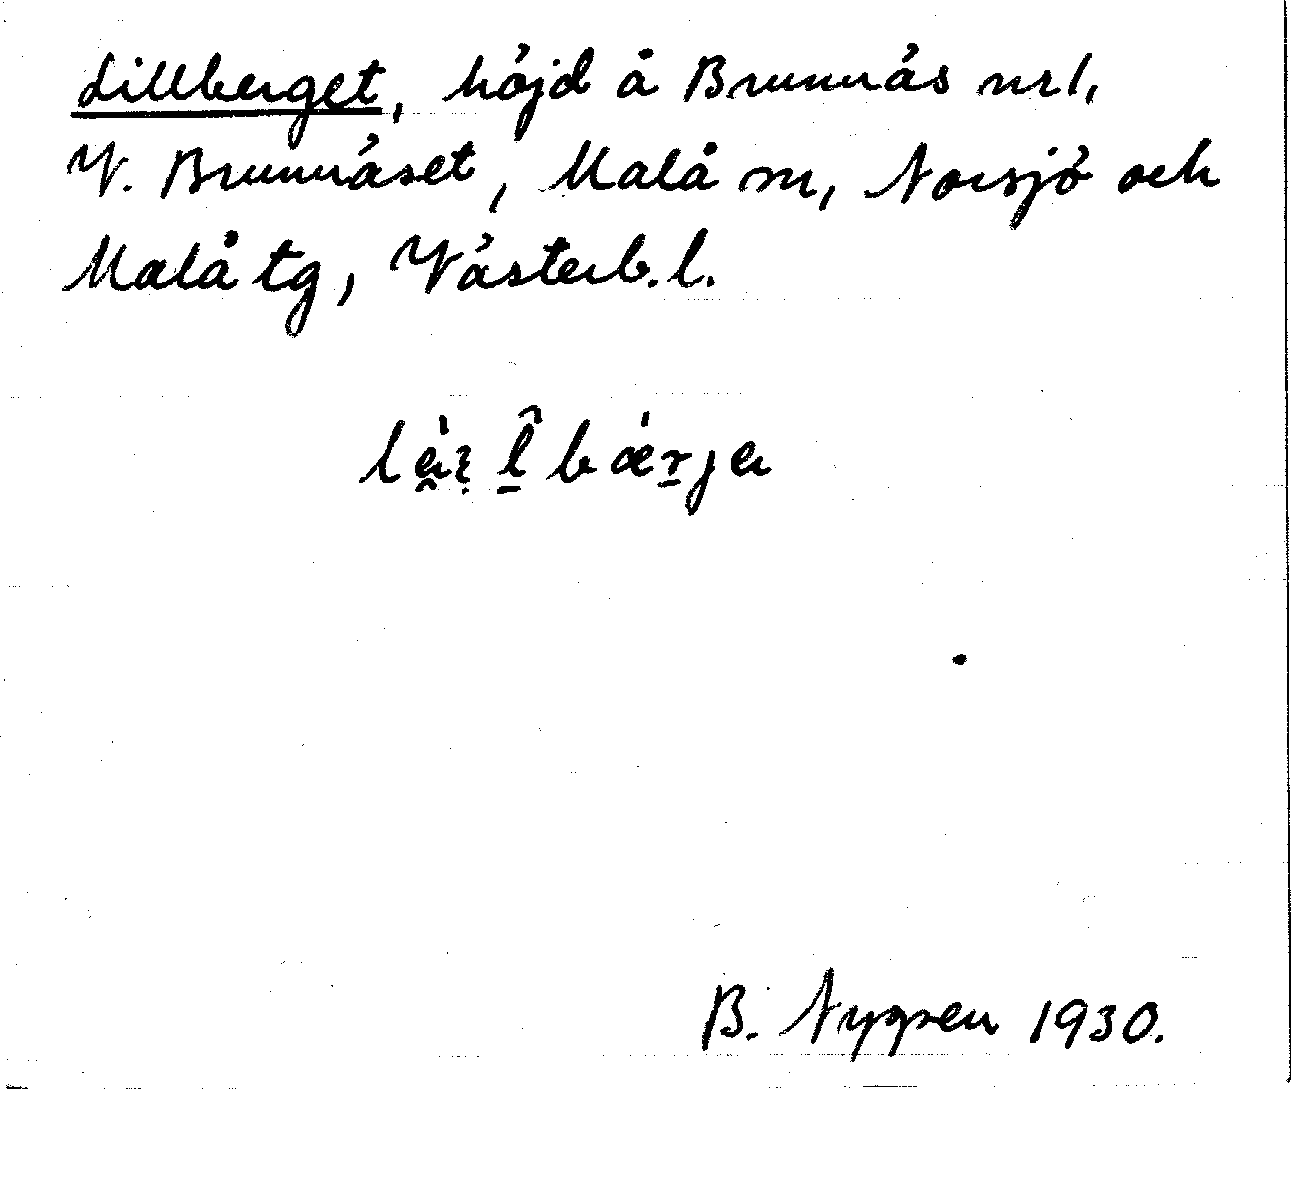 Lillberget, höjd å Brunnäs nr 1,
V. Brunnäset, Malå sn, Norsjö och
Malå tg, Västerb. l.
B. Nygren 1930.